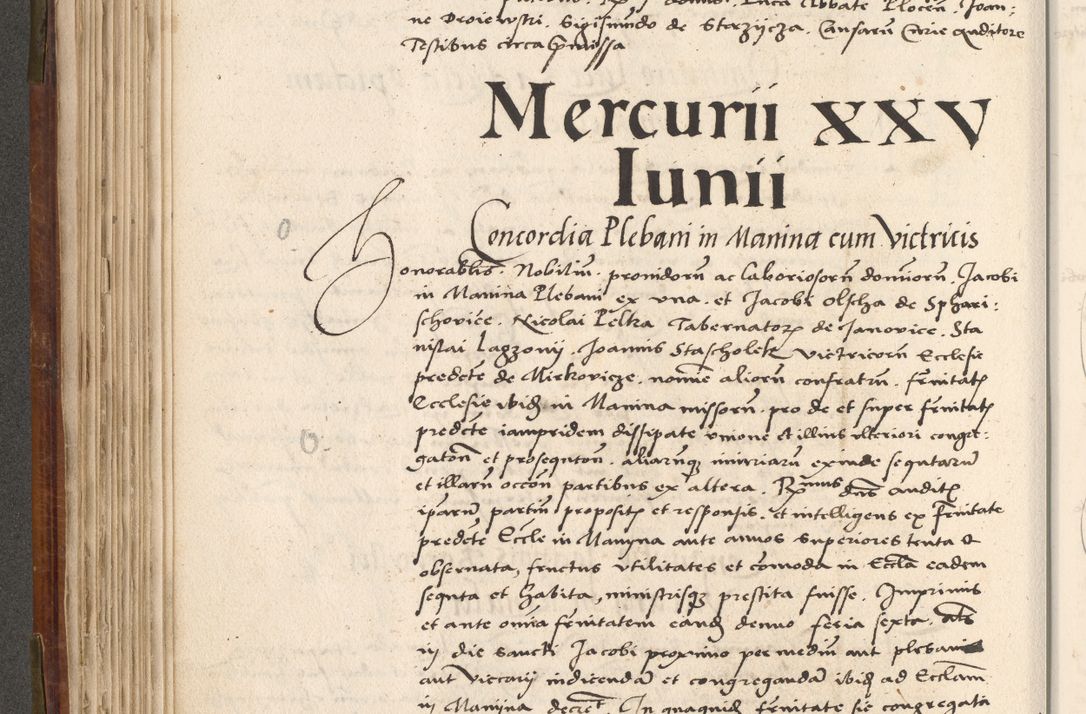 Abbate Plocen. Joan:
ne Droiewski. Sigismundo de Sterzijcza. Causarū Curie Auditore
Testibus circa p̄missa
Mercurii XXV
Iunii
Concordia Plebani in Manina cum Victricis
Honorabliū. Nobiliū. providorū ac laboriosorū dominorū. Jacobi
in Manina Plebani ex una. et Jacobi Olscha de Sphari:
schovice. Nicolai Pelka Tabernatoꝝ de Janovice. Sta
nislai Lagzonij. Joannis Stascholek Victricorū Ecclesie
predcte de Mirkovicze. nom̄ie aliorū confratrū. frnitatꝭ
Ecclesie ibidē in Manina missorū. pro de et super frnitatꝭ
predcte iampridem dissipate unione et illius ulteriori congre:
gatōn et prosequtōn. aliarūqꝫ iniuriarū exinde sequtarū
et illarū occōn partibus ex altera. Rxmus dns auditꝭ
iparū partiū propositꝭ et responsis. et intelligens ex frnitate
predcte Eccle in Manyna ante annos superiores tenta et
observata, fructus utilitates et comoda in Eccla eadem
sequta et habita, ministrisqꝫ prestita fuisse. Imprimis
et ante omnia frnitatem eandē denuo feria sexta.
in die sancti Jacobi proximo per mediū aut plebani
aut Vicarij indicendā et congregandā ibidē ad Ecclam
in Manina decret. In quaquidē frnitate sic congregata